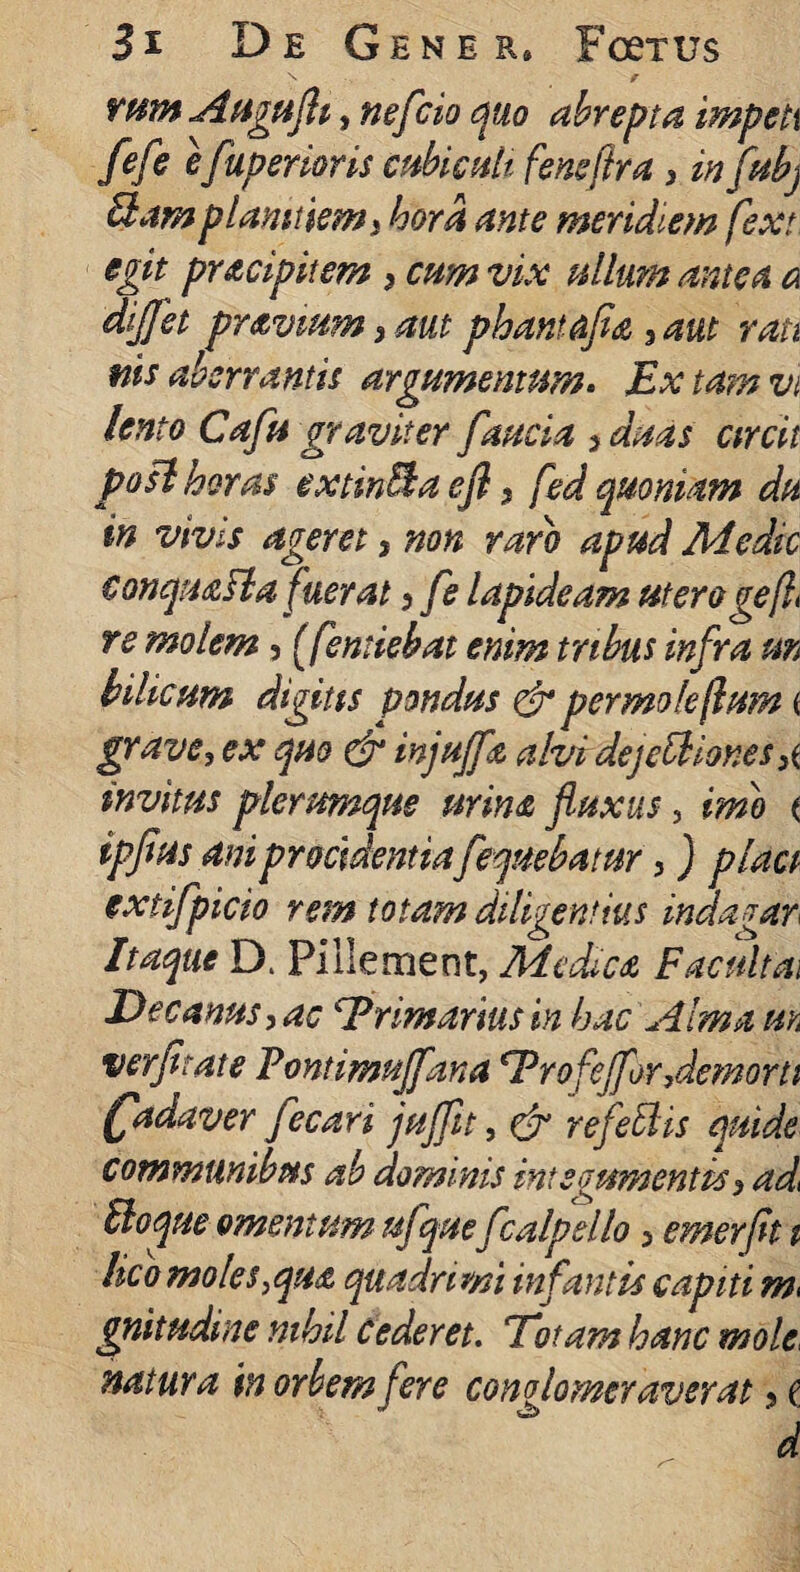 31 DE GENER. FŒTUS
rum Augusti, nescio quo abrepta impetu
sese è superioris cubiculi fenestra, in subj
ctam planitiem, horâ ante meridiem sext
egit præcipitem, cum vix ullum antea a
disset prævium, aut phantasiæ, aut rati
nis aberrantis argumentum. Ex tam vi
lento Casu graviter saucia, duas circit
post horas extincta est, sed quoniam du
in vivis ageret, non rarò apud Medic
conquæsta fuerat, se lapideam utero gest
re molem, (sentiebat enim tribus infra un
bilicum digitis pondus & permolestum
grave, ex quo & injussæ alvi dejectiones,
invitus plerumque urinæ fluxus, imò
ipsius ani procidentia sequebatur,) placu
extispicio rem totam diligentius indagar
Itaque D. Pillement, Medicæ Facultat
Decanus, ac Primarius in hac Alma un
versitate Pontimussana Professor, demortu
Cadaver secari jussit, & refectis quide
communibus ab dominis integumentis, ad
ctoque omentum usque scalpello, emersit i
licò moles, quæ quadrimi infantis capiti m
gnitudine nihil cederet. Totam hanc mole
natura in orbem fere conglomeraverat,
d